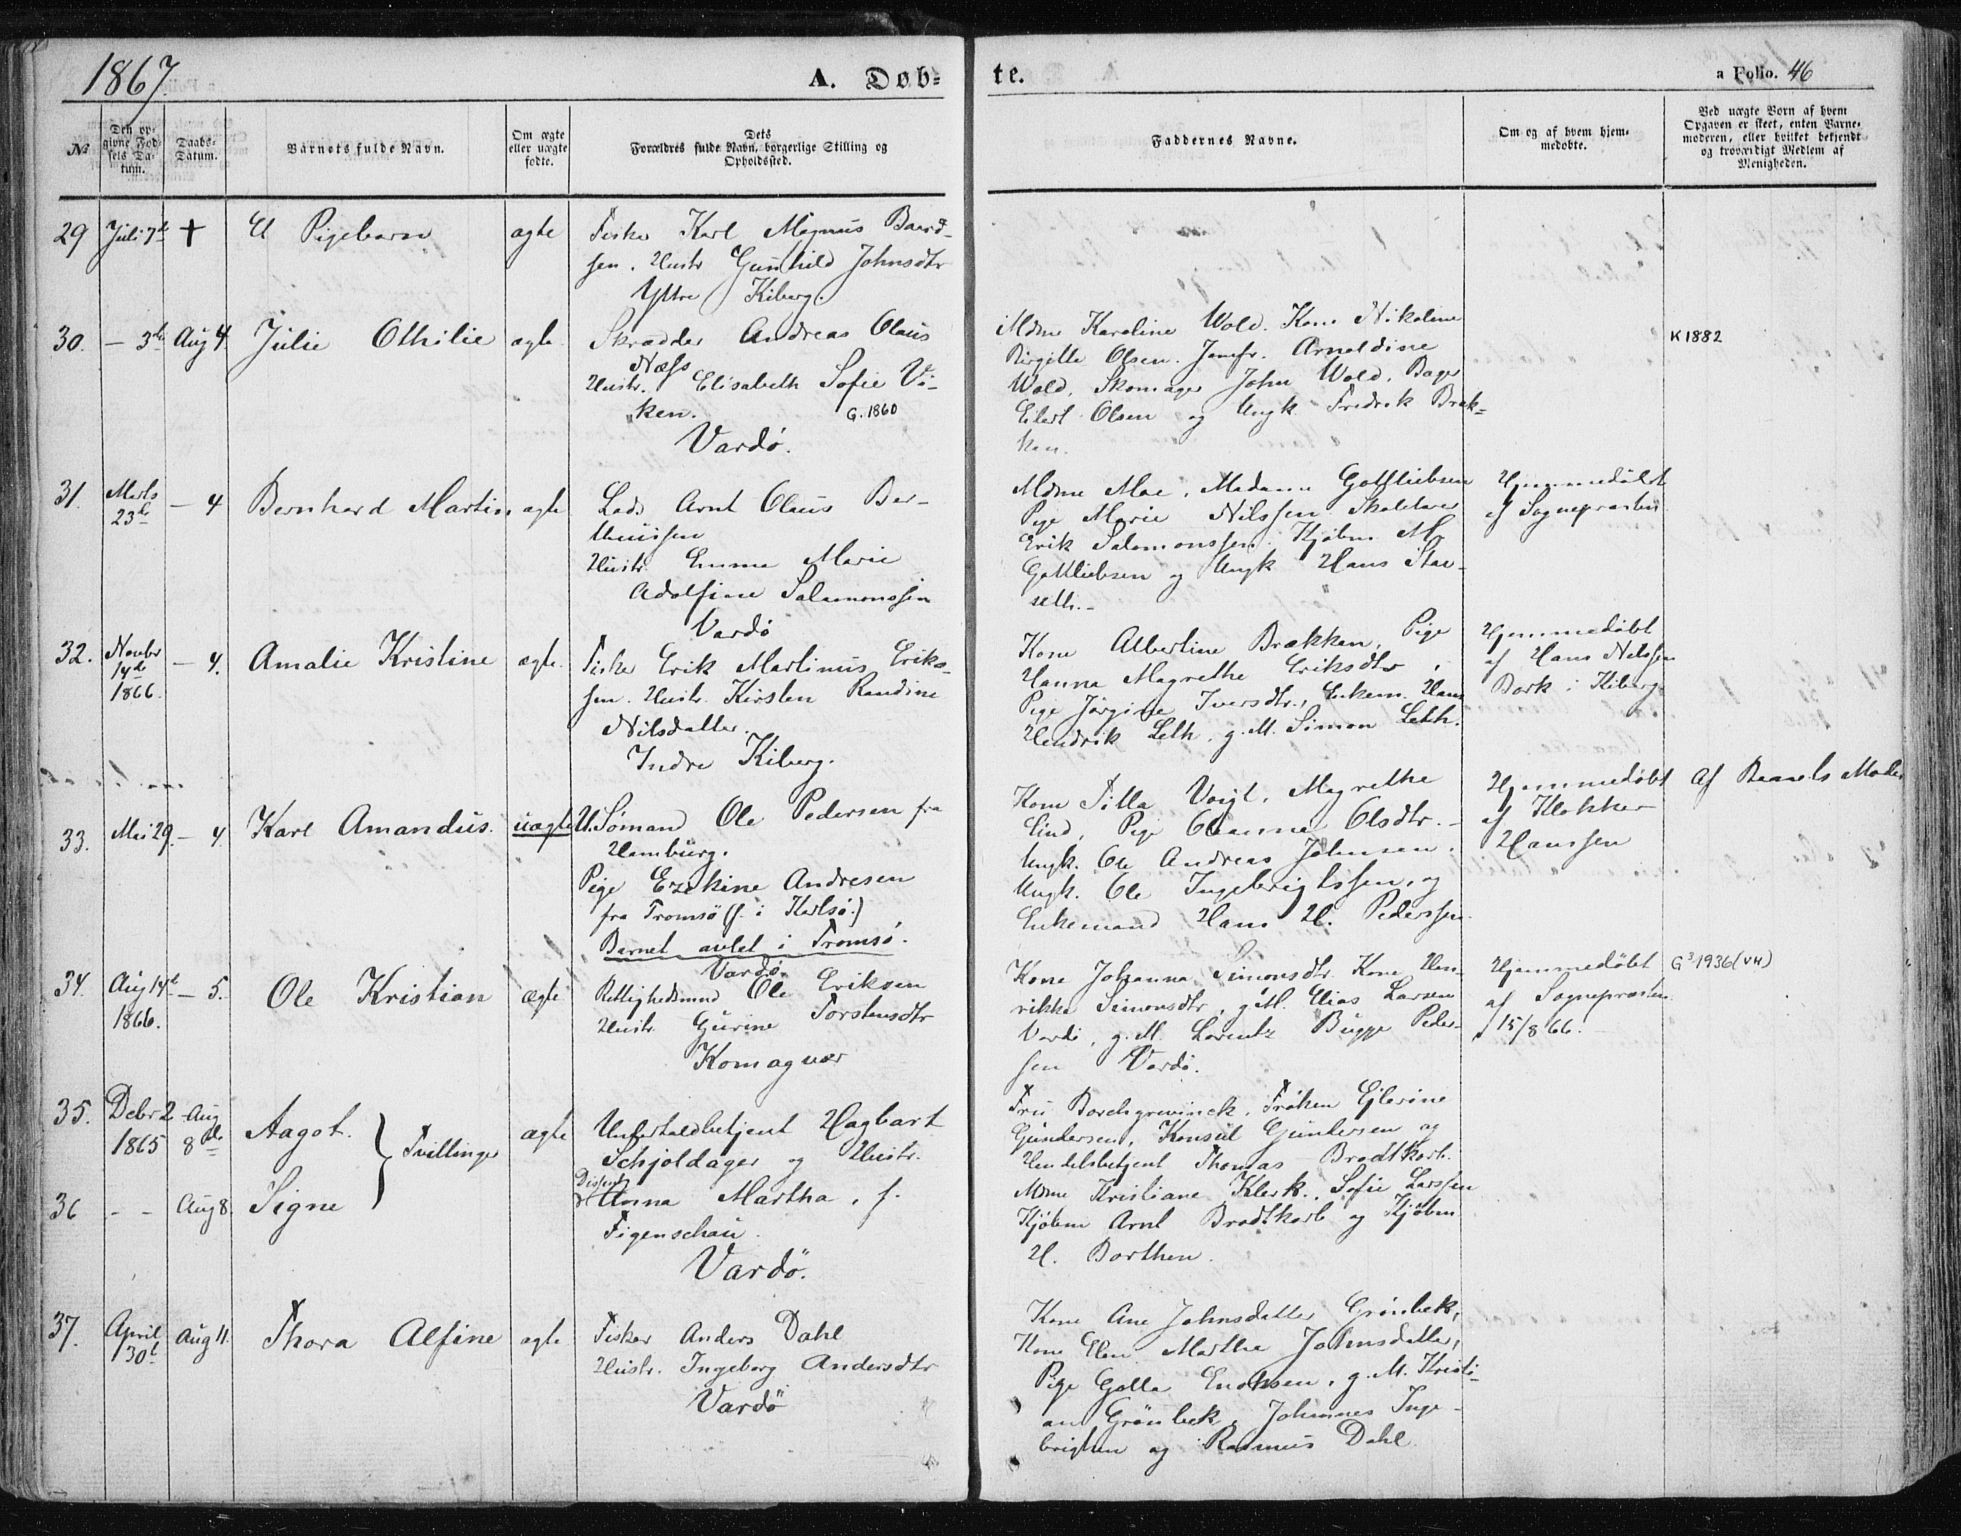 1867.
A. Døb-
te.
a Folio. 46
No
Den op-
givne Fød-
sels Da-
tum.
Daabs-
Datum.
Barnets fulde Navn.
Om ægte
eller uægte
fødte.
Dets
Forældres fulde Navn, borgerlige Stilling og
Opholdssted.
Faddernes Navne.
Om og af hvem hjem-
medøbte.
Ved uægte Børn af hvem
Opgaven er skeet, enten Barne-
moderen, eller hvilket bekjendt
og troværdigt Medlem af
Menigheden.
29 Juli 7de + Et Pigebarn ægte
Fisker Karl Magnus Baard-
sen. Hustr Gunhild Johnsdtr
Yttre Kiberg.
30. - 3die Aug 4. Julie Othilie ægte
Skrædder Andreas Olaus
Næss
Hustr. Elisabeth Sofie Vi-
ken. G. 1860
Vardö.
Mdme Karoline Wold. Kone Nikoline
Birgitte Olsen. Jomfr. Arnoldine
Wold. Skomager John Wold. Bager
Eilert Olsen og Ungk Fredrik Bræk-
ken.
K 1882
31. Marts 23de - 4 Bernhard Martin ægte
Lods Arnt Olaus Ber-
thinissen
Hustr. Emma Marie
Adolfine Salamonssen
Vardö
Mdme Moe. Madame Gottliebsen
Pige Marie Nilssen Skolelærer
Erik Salomonssen. Kjøbm. M.
Gottliebsen og Ungk Hans Stor-
seth.-
Hjemmedøbt
af Sognepræsten
32. Novbr 14de 1866. - 4. Amalie Kristine ægte
Fisker Erik Martinus Erik-
sen. Hustr. Kirsten Randine
Nilsdatter.
Indre Kiberg.
Kone Albertine Brækken, Pige
Hanna Magrethe Eriksdtr,
Pige Jørgine Iversdtr., Enkem. Hans
Hendrik Leth. g. M. Simon Leth.
Hjemmedøbt
af Hans Nilssen
Bork i Kiberg
33. Mai 29. - 4. Karl Amandus. uægte
U. Sømand Ole Pedersen fra
Hamburg.
Pige Ezekine Andresen
fra Tromsö (f. i Karlsö.)
Barnet avlet i Tromsö.
Vardö.
Kone Silla Voigt, Magrethe
Lind, Pige Olsdtr.
Ungk. Ole Andreas Johnsen.
Ungk. Ole Ingebrigtssen, og
Enkemand Hans H. Pederssen.
Hjemmedøbt
af Klokker
Hanssen
Af Barnets Moder
34. Aug 14de 1866. - 5. Ole Kristian ægte
Rettighedsmand Ole Eriksen
Hustr. Gurine Torstensdtr
Komagvær
Kone Johanna Simonsdtr. Kone Hen-
rikke Simonsdtr, g. M. Elias Larsen
Vardö, g. M. Lorentz Bugge Peder-
sen Vardö.
Hjemmedøbt
af Sognepræsten
15/8 66.
G³ 1936 (VH)
35. Debr 2 1865 -Aug 8de Aagot. } Tvillinger ægte
Underfoldbetjent Hagbart
Schjoldager og Hustr.
Dissent
Anna Martha, f.
Figenschau.
Vardö.
Fru Borchgrevinck. Frøken Ejlerine
Gundersen, Konsul Gundersen og
Handelsbetjent Thomas Brodtkorb.
36 - - Aug 8. Signe
Mdme Kristiane Klerk. Sofie Larssen
Kjøbm Arnt Brodtkorb og Kjøbm
H. Borthen.
37. April 30te Aug 11. Thora Alfine ægte
Fisker Anders Dahl
Hustr. Ingeborg Andersdtr
Vardö
Kone Ane Johnsdatter Grønbek,
Kone Elen Martha Johnsdatter,
Pige Golla Enoksen, g. M. Kristi-
an Grönbek, Johannes Inge-
brigtsen og Rasmus Dahl.